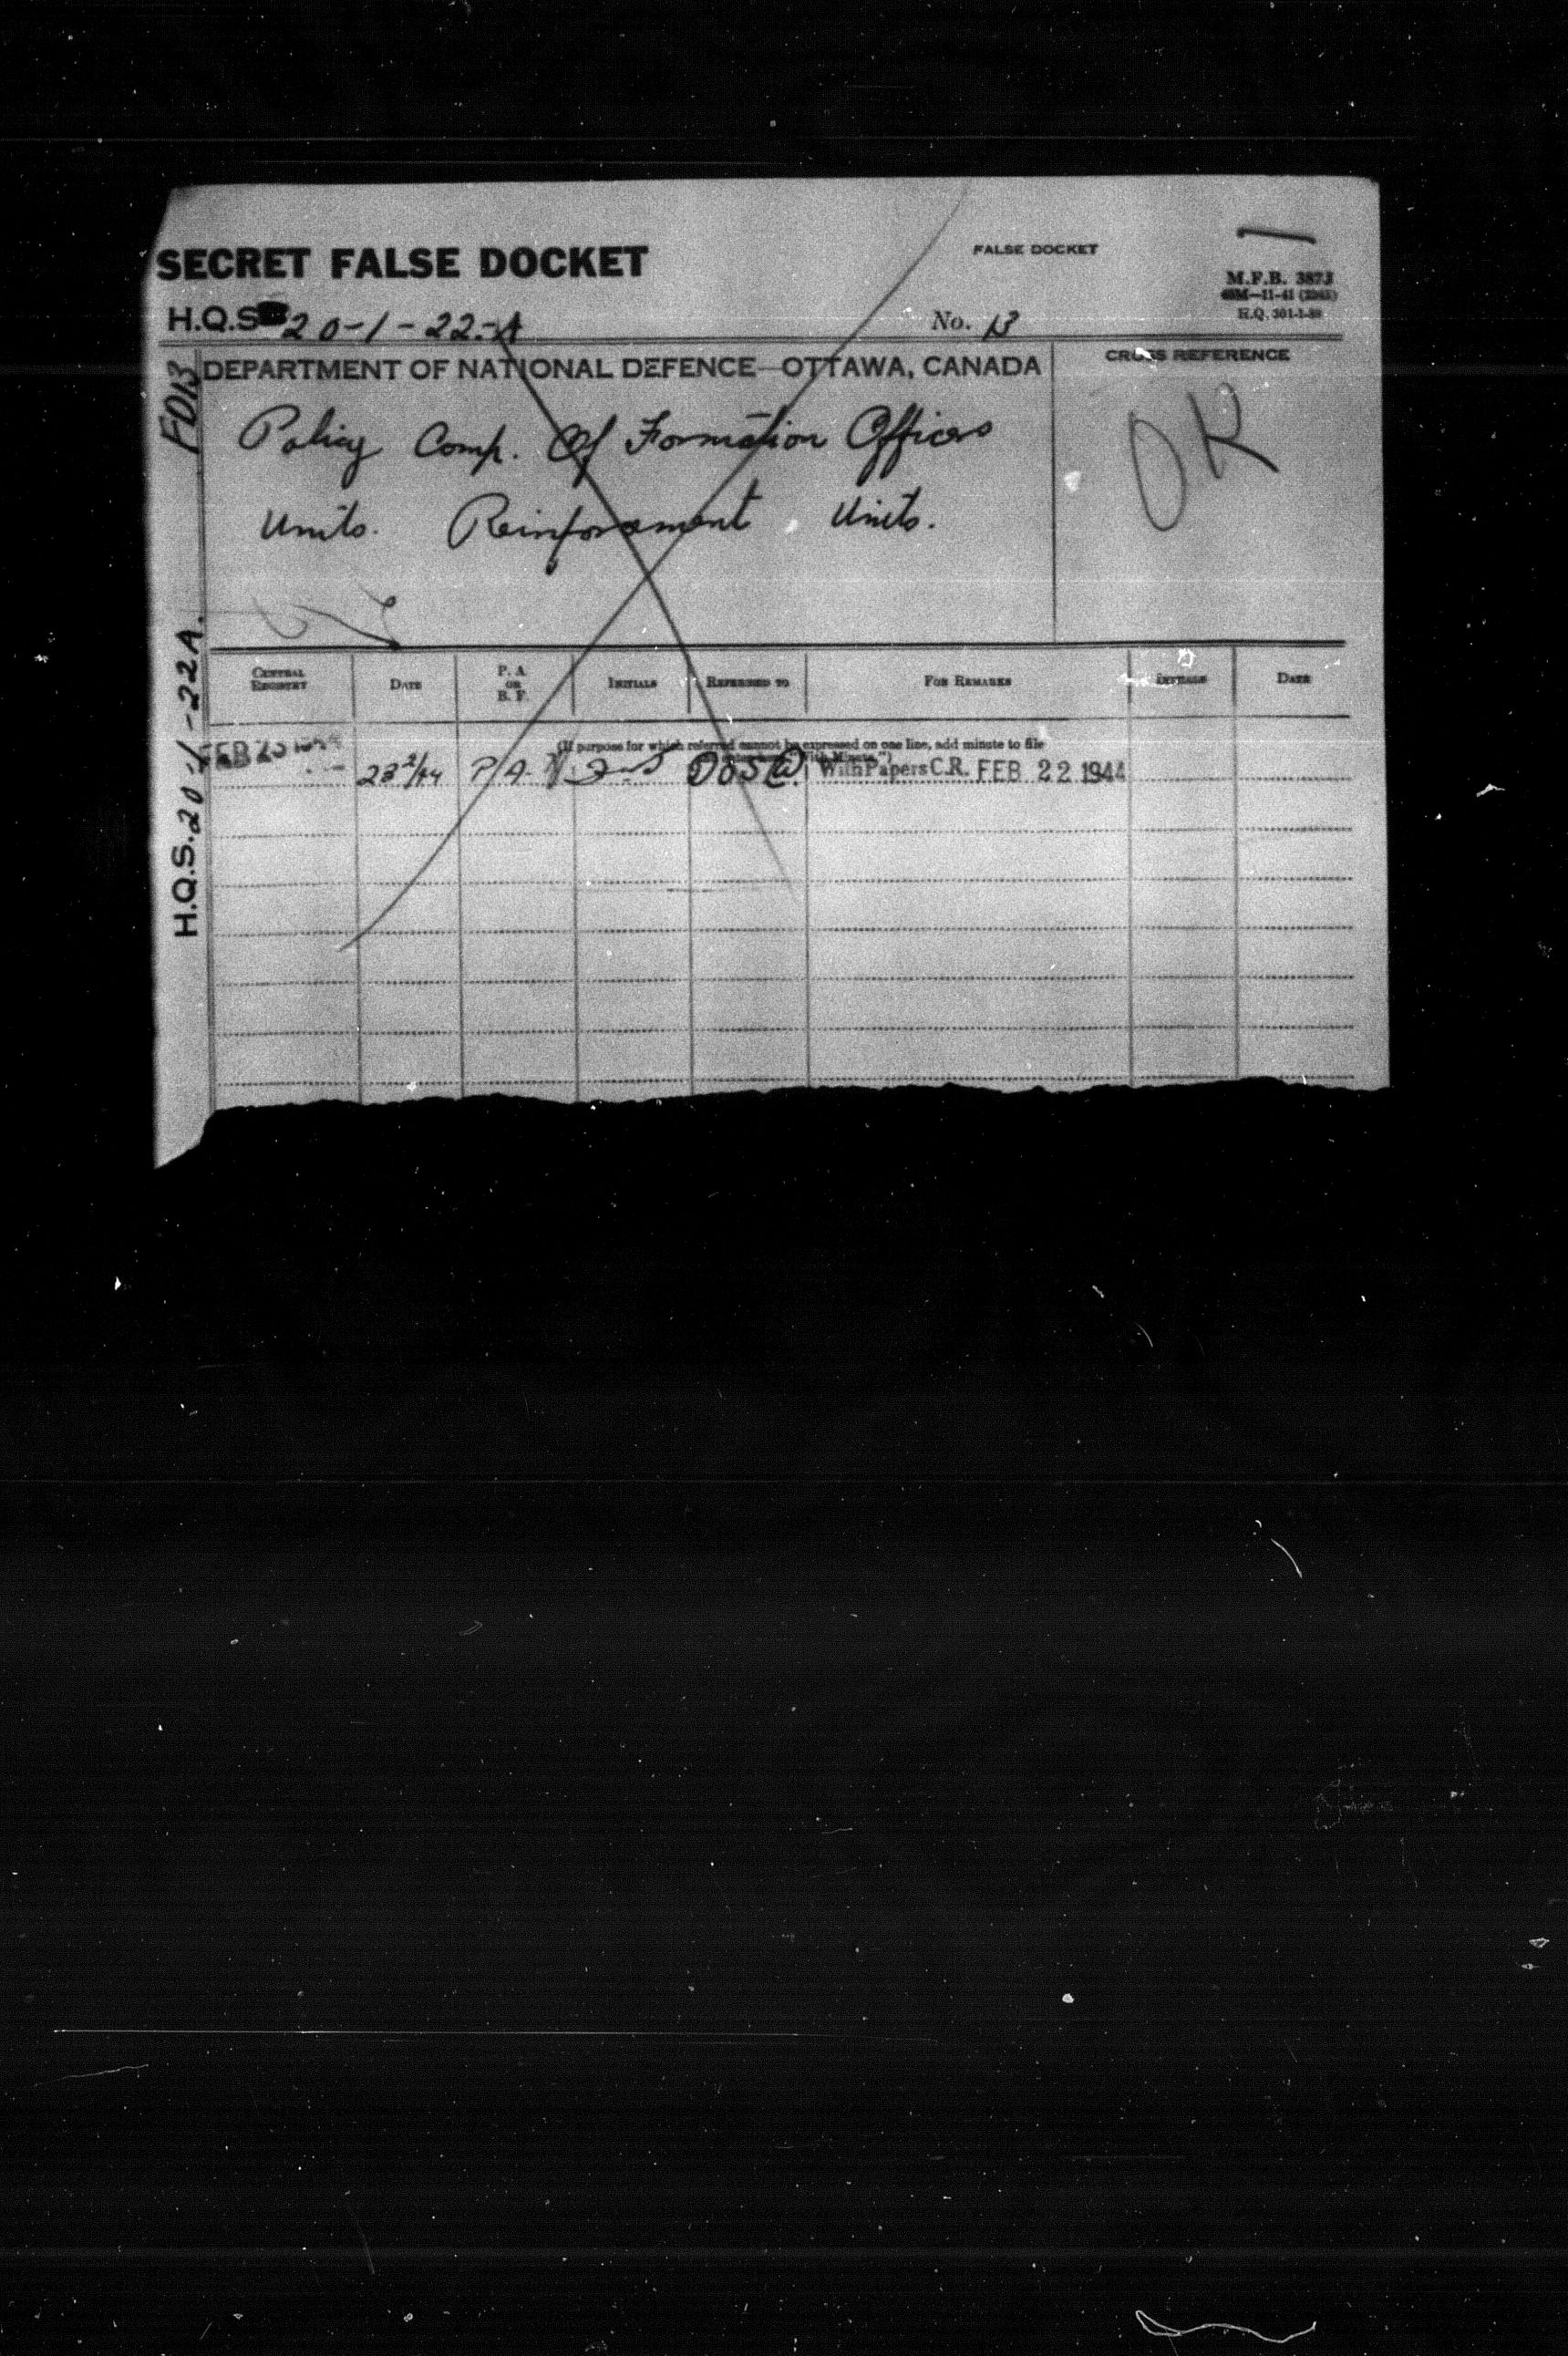 SECRET FALSE DOCKET
FALSE DOCKET
M.F.B. 387J
H.Q. 301-1-89
H.Q.S. 20-1-22-A
No. 13
DEPARTMENT OF NATIONAL DEFENCE—OTTAWA, CANADA
CROSS REFERENCE
Policy Comp. Of Formation Offices
Units. Reinforcement Units.
OK
FD13
H.Q.S. 20-1-22A.
CENTRAL REGISTRY
DATE
P. A. OR B. F.
INITIALS
REFERRED TO
FOR REMARKS
INITIALS
DATE
(If purpose for which referred cannot be expressed on one line, add minute to file
"With Minute")
FEB 23 1944
23 2/44 P/A. With Papers C.R. FEB 22 1944